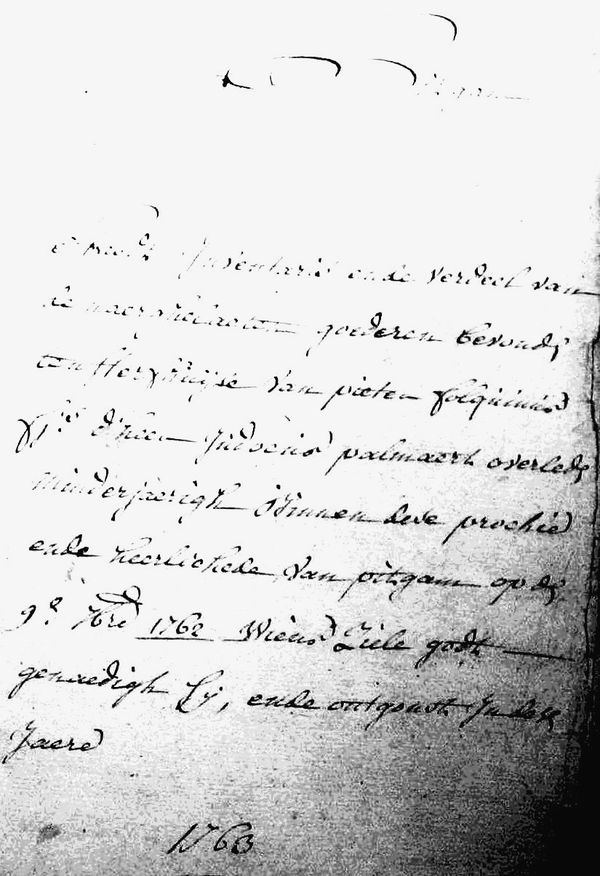 Pitgam
Inventaris ende verdeel van
de naerghelaeten goederen bevonds
ten sterfhuijse van pieter folquinus
fs. d'heer Judocus palmaert overleds
minderjaerigh binnen dese prochie
ende heerlichede van pitgam op ds
9e. 7bre 1762 Wiens Ziele godt
genaedigh sy, ende ontgonst In dese
Jaere
1763